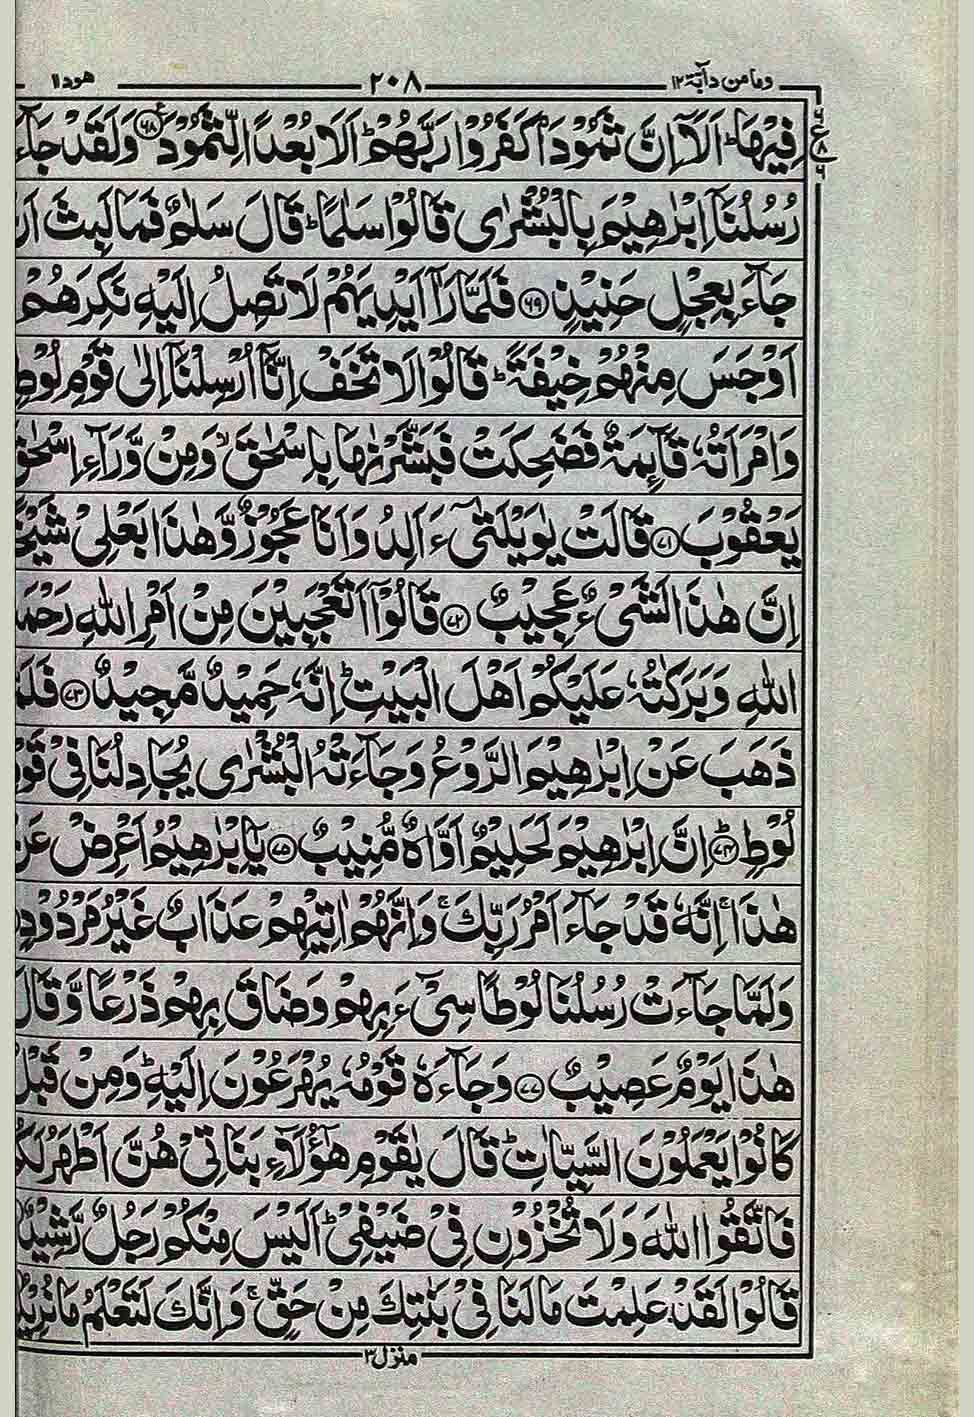 ومامن دآبة ١٢ ٢٠٨ هود ١١
فِيْهَا ؕ اَلَاۤ اِنَّ ثَمُوْدَا۠ كَفَرُوْا رَبَّهُمْ ؕ اَلَا بُعْدًا لِّثَمُوْدَ ۶۸ وَلَقَدْ جَآءَ
رُسُلُنَاۤ اِبْرٰهِيْمَ بِالْبُشْرٰى قَالُوْا سَلٰمًا ؕ قَالَ سَلٰمٌ فَمَا لَبِثَ اَ
جَآءَ بِعِجْلٍ حَنِيْذٍ ۶۹ فَلَمَّا رَاٰۤ اَيْدِيَهُمْ لَا تَصِلُ اِلَيْهِ نَكِرَهُمْ
اَوْجَسَ مِنْهُمْ خِيْفَةً ؕ قَالُوْا لَا تَخَفْ اِنَّاۤ اُرْسِلْنَاۤ اِلٰى قَوْمِ لُوْطٍ
وَامْرَاَتُهٗ قَآئِمَةٌ فَضَحِكَتْ فَبَشَّرْنٰهَا بِاِسْحٰقَ ۙ وَمِنْ وَّرَآءِ اِسْحٰقَ
يَعْقُوْبَ ۷۱ قَالَتْ يٰوَيْلَتٰۤى ءَاَلِدُ وَاَنَا عَجُوْزٌ وَّهٰذَا بَعْلِيْ شَيْخًا
اِنَّ هٰذَا لَشَيْءٌ عَجِيْبٌ ۷۲ قَالُوْۤا اَتَعْجَبِيْنَ مِنْ اَمْرِ اللّٰهِ رَحْمَ
اللّٰهِ وَبَرَكٰتُهٗ عَلَيْكُمْ اَهْلَ الْبَيْتِ ؕ اِنَّهٗ حَمِيْدٌ مَّجِيْدٌ ۷۳ فَلَمَّا
ذَهَبَ عَنْ اِبْرٰهِيْمَ الرَّوْعُ وَجَآءَتْهُ الْبُشْرٰى يُجَادِلُنَا فِيْ قَوْ
لُوْطٍ ؕ ۷۴ اِنَّ اِبْرٰهِيْمَ لَحَلِيْمٌ اَوَّاهٌ مُّنِيْبٌ ۷۵ يٰۤاِبْرٰهِيْمُ اَعْرِضْ عَنْ
هٰذَا ۚ اِنَّهٗ قَدْ جَآءَ اَمْرُ رَبِّكَ ۚ وَاِنَّهُمْ اٰتِيْهِمْ عَذَابٌ غَيْرُ مَرْدُوْدٍ
وَلَمَّا جَآءَتْ رُسُلُنَا لُوْطًا سِيْٓءَ بِهِمْ وَضَاقَ بِهِمْ ذَرْعًا وَّقَالَ
هٰذَا يَوْمٌ عَصِيْبٌ ۷۷ وَجَآءَهٗ قَوْمُهٗ يُهْرَعُوْنَ اِلَيْهِ ؕ وَمِنْ قَبْلُ
كَانُوْا يَعْمَلُوْنَ السَّيِّاٰتِ ؕ قَالَ يٰقَوْمِ هٰۤؤُلَآءِ بَنَاتِيْ هُنَّ اَطْهَرُ لَكُ
فَاتَّقُوا اللّٰهَ وَلَا تُخْزُوْنِ فِيْ ضَيْفِيْ ؕ اَلَيْسَ مِنْكُمْ رَجُلٌ رَّشِيْدٌ
قَالُوْا لَقَدْ عَلِمْتَ مَا لَنَا فِيْ بَنٰتِكَ مِنْ حَقٍّ ۚ وَاِنَّكَ لَتَعْلَمُ مَا نُرِيْدُ
منزل ٣